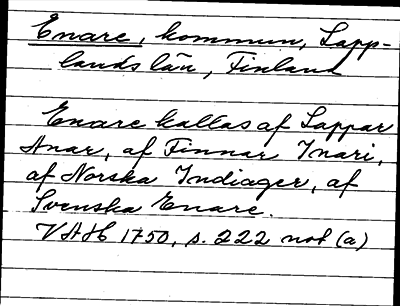 Enare, kommun, Lapp-
lands län, Finland
Enare kallas af Lappar
Anar, af Finnar Inari,
af Norska Indiager, af
Svenska Enare.
VAH 1750, s. 222 not (a)